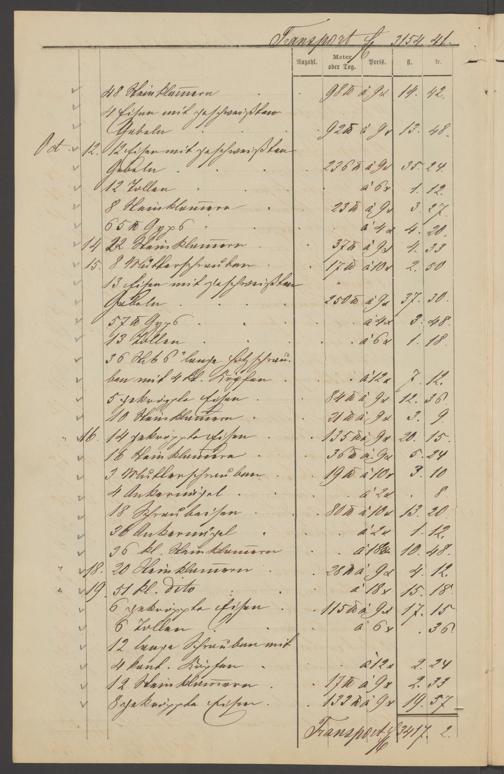 Transport f 3154. 41.
Anzahl. Meter oder Tag. Preis. fl. kr.
48 Steinklammern 98 ℔ à 9x 14. 42.
4 Eisen mit geschweißten
Gabeln 92 ℔ à 9x 13. 48.
Oct. 12. 12 Eisen mit geschweißten
Gabeln 236 ℔ à 9x 35. 24.
12 Zollen à 6x 1. 12.
8 Steinklammern 23 ℔ à 9x 3. 27.
65 ℔ Gyps à 4x 4. 20.
14 22 Steinklammern 37 ℔ à 9x 4. 33
15. 8 Mutterschrauben 17 ℔ à 10x 2. 50
13 Eisen mit geschweißten
Gabeln 250 ℔ à 9x 37. 30.
57 ℔ Gyps à 4x 3. 48.
13 Zollen à 6x 1. 18.
36 Stk 6" lange Holzschrau-
ben mit 4 kt. Köpfen à 12x 7. 12.
5 gekröpfte Eisen 84 ℔ à 9x 12. 36
10 Steinklammern 21 ℔ à 9x 3. 9
16. 14 gekröpfte Eisen 135 ℔ à 9x 20. 15.
16 Steinklammern 36 ℔ à 9x 5. 24
3 Mutterschrauben 19 ℔ à 10x 3. 10
4 Ankernägel à 2x . 8.
18 Schraubeisen 80 ℔ à 10x 13. 20
36 Ankernägel à 2x 1. 12.
36 kl. Steinklammern à 18x 10. 48.
18. 20 Steinklammern 28 ℔ à 9x 4. 12.
19. 51 kl. Dito à 18x 15. 18
6 gekröpfte Eisen 115 ℔ à 9x 17. 15
6 Zollen à 6x . 36
12 lange Schrauben mit
4 kant. Köpfen à 12x 2. 24
12 Steinklammern 17 ℔ à 9x 2. 33
8 gekröpfte Eisen 133 ℔ à 9x 19. 57
Transport f 3417. 2.